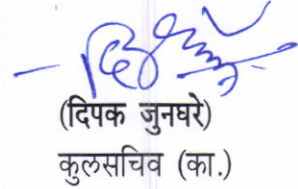 (दिपक जुनघरे)
कुलसचिव (का.)